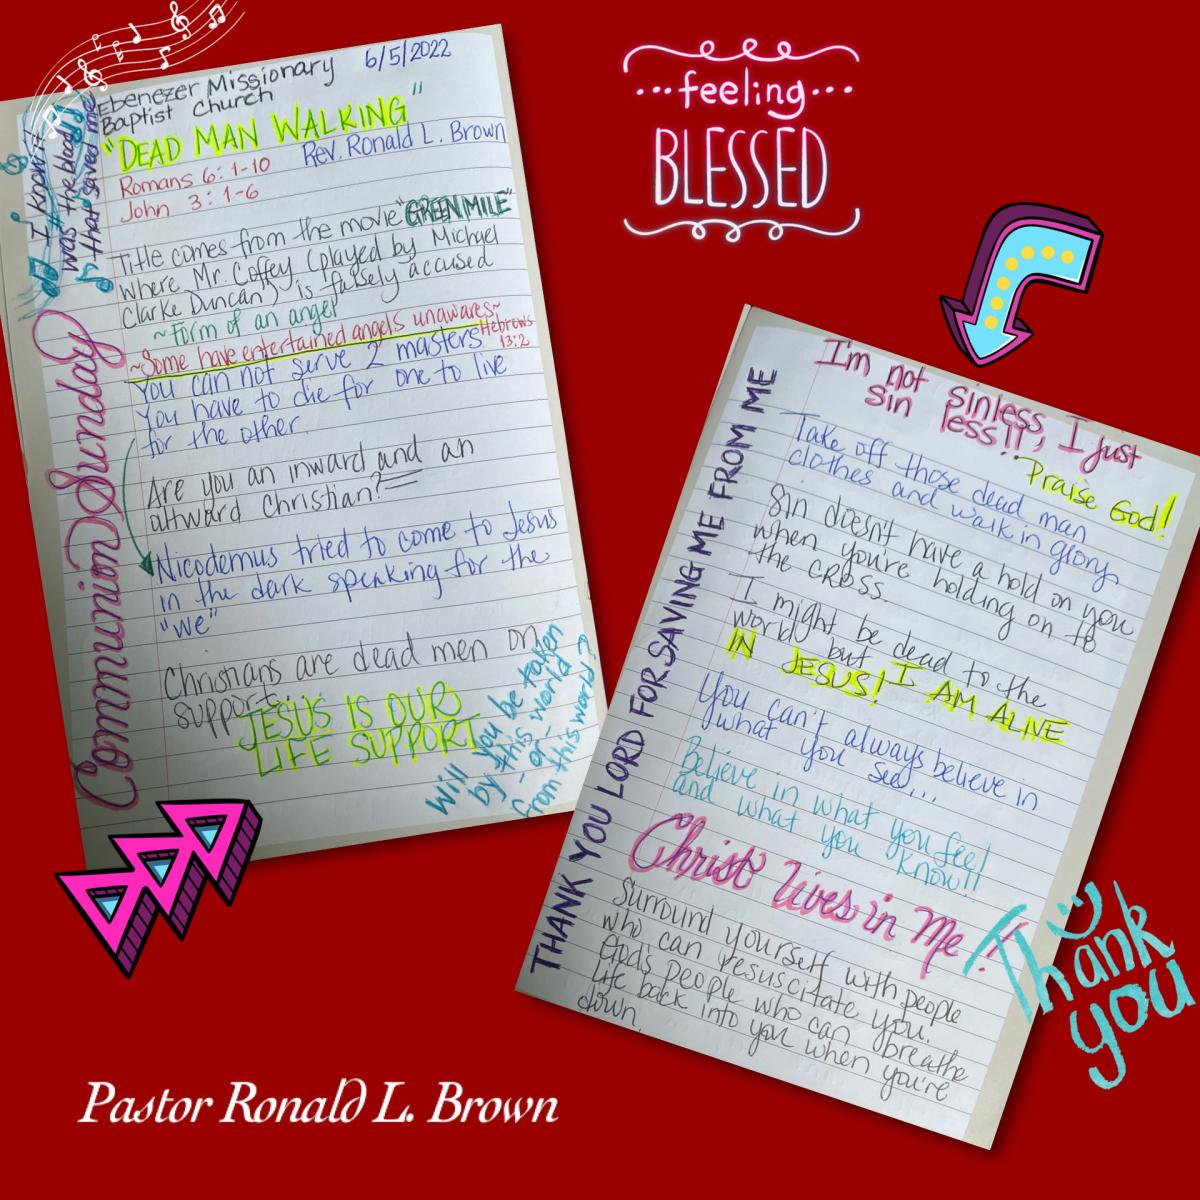 Ebenezer Missionary
Baptist Church
6/5/2022
"DEAD MAN WALKING"
Romans 6: 1-10
Rev. Ronald L. Brown
John 3: 1-6
I know it
was the blood
that saved me
Communion Sunday
Title comes from the movie "GREEN MILE"
where Mr. Coffey (played by Michael
Clarke Duncan) is falsely accused
~Form of an angel
~Some have entertained angels unawares~
Hebrews
13:2
You can not serve 2 masters
You have to die for one to live
for the other.
Are you an inward and an
outward Christian?
Nicodemus tried to come to Jesus
in the dark speaking for the
"we"
Christians are dead men on
support.
JESUS IS OUR
LIFE SUPPORT
Will you be taken
by this world
-or-
from this world?
feeling
BLESSED
I'm not sinless, I just
sin less!!
Praise God!
Take off those dead man
clothes and walk in glory
Sin doesn't have a hold on you
when you're holding on to
the CROSS.
I might be dead to the
world but I AM ALIVE
IN JESUS!
You can't always believe in
what you see...
Believe in what you feel
and what you know!!
Christ lives in Me!!
Surround yourself with people
who can resuscitate you.
Gods people who can breathe
life back into you when you're
down.
THANK YOU LORD FOR SAVING ME FROM ME
Thank
you
Pastor Ronald L. Brown